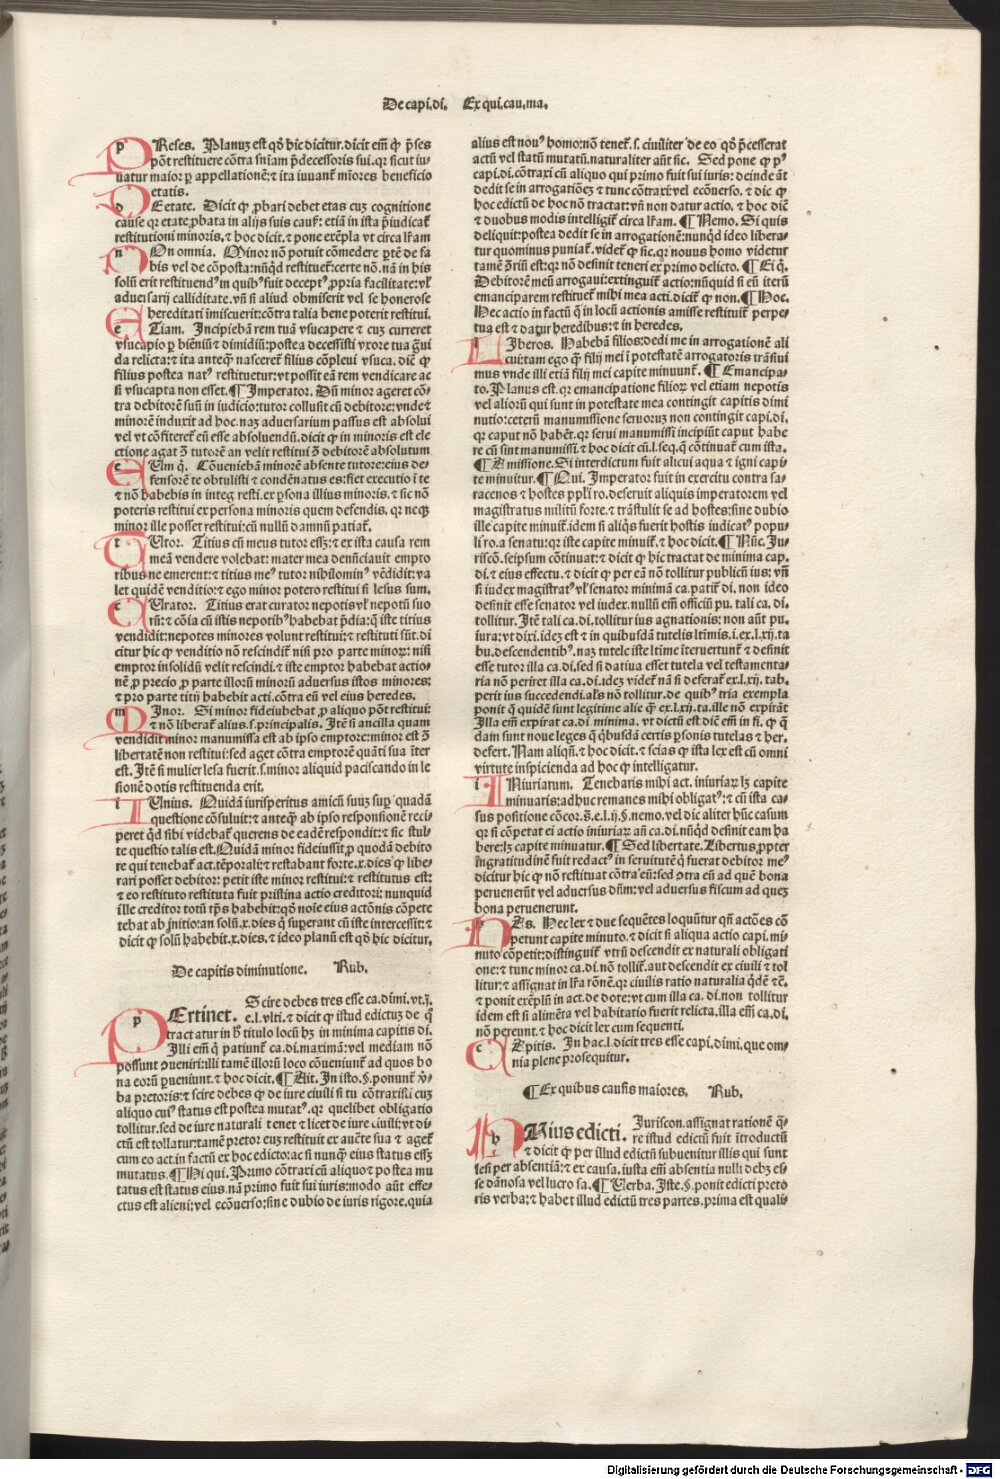 De capi.di. Ex qui.cau.ma.
PReses. Planuz est qđ hic dicitur.dicit em̃ ꝙ p̃ses
põt restituere cõtra sniam p̃decessoris sui.qr sicut iu
uatur maior ꝑ appellationẽ: ⁊ ita iuuant᷑ miores beneficio
etatis.
DEetate. Dicit ꝙ ꝓbari debet etas cuz cognitione
cause qr etate ꝓbata in alijs suis caus᷑: etiã in ista p̃iudicat᷑
restitutioni minoris. ⁊ hoc dicit. ⁊ pone exẽpla vt circa lr̃am
NOn omnia. Minor nõ potuit cõmedere ꝑtẽ de fa
bis vel de cõposta: nũqd restituet᷑: certe nõ. nã in his
solũ erit restituendꝰ in quibꝰ fuit deceptꝰ ꝓpria facilitate: vł
aduersarij calliditate. vñ si aliud obmiserit vel se honerose
hereditati ĩmiscuerit: cõtra talia bene poterit restitui.
ETiam. Incipiebã rem tuã vsucapere ⁊ cuz curreret
vsucapio ꝑ biẽniũ ⁊ dimidiũ: postea decessisti vxore tua g̃ui
da relicta: ⁊ ita anteq̃ nasceret᷑ filius cõpleui vsuca. diẽ ꝙ
filius postea natꝰ restituetur: vt possit eã rem vendicare ac
si vsucapta non esset. ¶ Imperator. Dũ minor ageret cõ-
tra debitorẽ suũ in iudicio: tutor collusit cũ debitore: vnde
minorẽ induxit ad hoc. naz aduersarium passus est absolui
vel vt cõfiteret᷑ eũ esse absoluendũ. dicit ꝙ in minoris est ele
ctione agat ꝯ̃ tutorẽ an velit restitui ꝯ̃ debitorẽ absolutum
CUm q̃. Cõueniebã minorẽ absente tutore: eius de-
fensorẽ te obtulisti ⁊ condẽnatus es: fiet executio ĩ te
⁊ nõ habebis in integ resti. ex ꝑsona illius minoris. ⁊ sic nõ
poteris restitui ex persona minoris quem defendis. qr necꝫ
minor ille posset restitui: cũ nullũ damnũ patiat᷑.
TUtor. Titius cũ meus tutor essꝫ: ⁊ ex ista causa rem
meã vendere volebat: mater mea denũciauit empto
ribus ne emerent: ⁊ titius meꝰ tutor nihilominꝰ vẽdidit: va
let quidẽ venditio: ⁊ ego minor potero restitui si lesus sum.
CUrator. Titius erat curator nepotis vł nepotũ suo
rũ: ⁊ cõia cũ istis nepotibꝰ habebat p̃dia: q̃ iste titius
vendidit: nepotes minores volunt restitui: ⁊ restituti sũt. di
citur hic ꝙ venditio nõ rescindit᷑ nisi pro parte minorꝝ: nisi
emptor insolidũ velit rescindi. ⁊ iste emptor habebat actio-
nẽ ꝓ precio ꝓ parte illorũ minorũ aduersus istos minores:
⁊ pro parte titij habebit acti. cõtra eũ vel eius heredes.
MInor. Si minor fideiubebat ꝓ aliquo põt restitui:
⁊ nõ liberat᷑ alius. s. principalis. Itẽ si ancilla quam
vendidit minor manumissa est ab ipso emptore: minor est ꝯ̃
libertatẽ non restitui: sed aget cõtra emptorẽ quãti sua ĩter
est. Itẽ si mulier lesa fuerit. s. minor aliquid paciscando in le
sionẽ dotis restituenda erit.
IUnius. Quidã iurisperitus amicũ suuz suꝑ quadã
questione cõsuluit: ⁊ anteq̃ ab ipso responsionẽ reci-
peret qđ sibi videbat᷑ querens de eadẽ respondit: ⁊ sic stul-
te questio talis est. Quidã minor fideiussit ꝓ quodã debito
re qui tenebat᷑ act. tẽporali: ⁊ restabant forte. x. dies ꝙ libe-
rari posset debitor: petit iste minor restitui: ⁊ restitutus est:
⁊ eo restituto restituta fuit pristina actio creditori: nunquid
ille creditor totũ tp̃s habebit: qđ noĩe eius actõnis cõpete
tebat ab initio: an solũ. x. dies q̃ suꝑerant cũ iste intercessit: ⁊
dicit ꝙ solũ habebit. x. dies. ⁊ ideo planũ est qđ hic dicitur.
De capitis diminutione. Rub.
PErtinet. Scire debes tres esse ca.dimi.vt.j.
e.l.vlti. ⁊ dicit ꝙ istud edictuz de q̃
tractatur in hͨ titulo locũ hꝫ in minima capitis di.
Illi em̃ q̃ patiunt᷑ ca.di.maximã: vel mediam nõ
possunt ꝯueniri: illi tamẽ illorũ loco cõueniunt᷑ ad quos bo
na eorũ ꝑueniunt. ⁊ hoc dicit. ¶ Ait. In isto. §. ponunt᷑ v̓-
ba pretoris: ⁊ scire debes ꝙ de iure ciuili si tu cõtraxisti cuz
aliquo cuiꝰ status est postea mutatꝰ. qr quelibet obligatio
tollitur. sed de iure naturali tenet ⁊ licet de iure ciuili: vt di-
ctũ est tollatur: tamẽ pretor euz restituit ex auc̃te sua ⁊ aget᷑
cum eo act. in factũ ex hoc edicto: ac si nunq̃ eius status essꝫ
mutatus. ¶ Hi qui. Primo cõtraxi cũ aliquo ⁊ postea mu
tatus est status eius. nã primo fuit sui iuris: modo aũt effe-
ctus est alieni: vel ecõuerso: sine dubio de iuris rigore. quia
alius est nouꝰ homo: nõ tenet᷑. s. ciuiliter de eo qđ p̃cesserat
actũ vel statũ mutatũ. naturaliter aũt sic. Sed pone ꝙ pꝰ
capi.di. cõtraxi cũ aliquo qui primo fuit sui iuris: deinde ãt
dedit se in arrogatiõez ⁊ tunc cõtraxi: vel ecõuerso. ⁊ dic ꝙ
hoc edictũ de hoc nõ tractat: vñ non datur actio. ⁊ hoc diẽ
⁊ duobus modis intelligit᷑ circa lr̃am. ¶ Nemo. Si quis
deliquit: postea dedit se in arrogationẽ: nunqđ ideo libera-
tur quominus puniat᷑. videt᷑ ꝙ sic. qr nouus homo videtur
tamẽ ꝯ̃riũ est: qr nõ desinit teneri ex primo delicto. ¶ Ei q̃.
Debitorẽ meũ arrogaui: extinguit᷑ actio: nũquid si eũ iterũ
emanciparem restituet᷑ mihi mea acti. dicit᷑ ꝙ non. ¶ Hoc.
Hec actio in factũ q̃ in locũ actionis amisse restituit᷑ perpe-
tua est ⁊ datur heredibus: ⁊ in heredes.
LIberos. Habebã filios: dedi me in arrogationẽ ali
cui: tam ego q̃ filij mei ĩ potestatẽ arrogatoris trãsiui
mus vnde illi etiã filij mei capite minuunt᷑. ¶ Emancipa-
to. Planus est. qr emancipatione filiorꝝ vel etiam nepotis
vel aliorũ qui sunt in potestate mea contingit capitis dimi
nutio: ceterũ manumissione seruoruz non contingit capi.di.
qr caput nõ habẽt. qr serui manumissi incipiũt caput habe
re cũ sint manumissi. ⁊ hoc dicit cũ.l.seq. q̃ cõtinuat᷑ cum ista.
¶ Amissione. Si interdictum fuit alicui aqua ⁊ igni capi-
te minuitur. ¶ Qui. Imperator fuit in exercitu contra sa-
racenos ⁊ hostes ppl̃i ro. deseruit aliquis imperatorem vel
magistratus militũ forte. ⁊ trãstulit se ad hostes: sine dubio
ille capite minuit᷑. idem si aliq̃s fuerit hostis iudicatꝰ popu-
li ro. a senatu: qr iste capite minuit᷑. ⁊ hoc dicit. ¶ Nũc. Iu-
riscõ. seipsum cõtinuat: ⁊ dicit ꝙ hic tractat de minima cap.
di. ⁊ eius effectu. ⁊ dicit ꝙ per eã nõ tollitur publicũ ius: vñ
si iudex magistratꝰ vł senator minimã ca. patit᷑ di. non ideo
desinit esse senator vel iudex. nullũ em̃ officiũ pu. tali ca.di.
tollitur. Itẽ tali ca.di. tollitur ius agnationis: non aũt pu.
iura: vt dixi. idez est ⁊ in quibusdã tutelis ltĩmis.i.ex.l.xij.ta
bu. descendentibꝰ. naz tutele iste ltĩme ĩteruertunt᷑ ⁊ desinit
esse tutor illa ca.di. sed si datiua esset tutela vel testamenta-
ria nõ periret illa ca.di. idez videt᷑ nã si deferat᷑ ex.l.xij.tab.
perit ius succedendi. als nõ tollitur. de quibꝰ tria exempla
ponit q̃ quidẽ sunt legitime alie q̃ ex.l.xij.ta. ille nõ expirãt
Illa em̃ expirat ca.di.minima. vt dictũ est diẽ em̃ in fi. ꝙ q̃
dam sunt noue leges q̃ qbusdã certis ꝑsonis tutelas ⁊ her.
defert. Nam aliqñ. ⁊ hoc dicit. ⁊ scias ꝙ ista lex est cũ omni
virtute inspicienda ad hoc ꝙ intelligatur.
INiuriarum. Tenebaris mihi act. iniuriarꝝ lꝫ capite
minuaris: adhuc remanes mihi obligatꝰ: ⁊ cũ ista ca-
sus positione cõcor.ß.e.l.ij.§.nemo. vel dic aliter hũc casum
qr si cõpetat ei actio iniuriarꝝ añ ca.di. nũqđ desinit eam ha
bere: lꝫ capite minuatur. ¶ Sed libertate. Libertus ꝓpter
ĩngratitudinẽ fuit redactꝰ in seruitutẽ q̃ fuerat debitor meꝰ
dicitur hic ꝙ nõ restituat cõtra eũ: sed ꝯtra eũ ad quẽ bona
peruenerũt vel aduersus dñm: vel aduersus fiscum ad quez
bona peruenerunt.
HAs. Hec lex ⁊ due sequẽtes loquũtur qñ actões cõ
petunt capite minuto. ⁊ dicit si aliqua actio capi.mi-
nuto cõpetit: distinguit᷑ vtrũ descendit ex naturali obligati
one: ⁊ tunc minor ca.di. nõ tollit᷑. aut descendit ex ciuili ⁊ tol
litur: ⁊ assignat in lr̃a rõnẽ. qr ciuilis ratio naturalia qđẽ ⁊c̃.
⁊ ponit exẽplũ in act. de dote: vt cum illa ca.di. non tollitur
idem est si alimẽta vel habitatio fuerit relicta. illa em̃ ca.di.
nõ pereunt. ⁊ hoc dicit lex cum sequenti.
CApitis. In hac.l. dicit tres esse capi.dimi. que om-
nia plene prosequitur.
¶ Ex quibus causis maiores. Rub.
HUius edicti. Juriscon. assignat rationẽ q̃-
re istud edictũ fuit ĩtroductũ
⁊ dicit ꝙ per illud edictũ subuenitur illis qui sunt
lesi per absentiã: ⁊ ex causa. iusta em̃ absentia nulli debꝫ es-
se dãnosa vel lucro sa. ¶ Uerba. Iste. §. ponit edicti preto
ris verba: ⁊ habet illud edictũ tres partes. prima est quali-
Digitalisierung gefördert durch die Deutsche Forschungsgemeinschaft - DFG